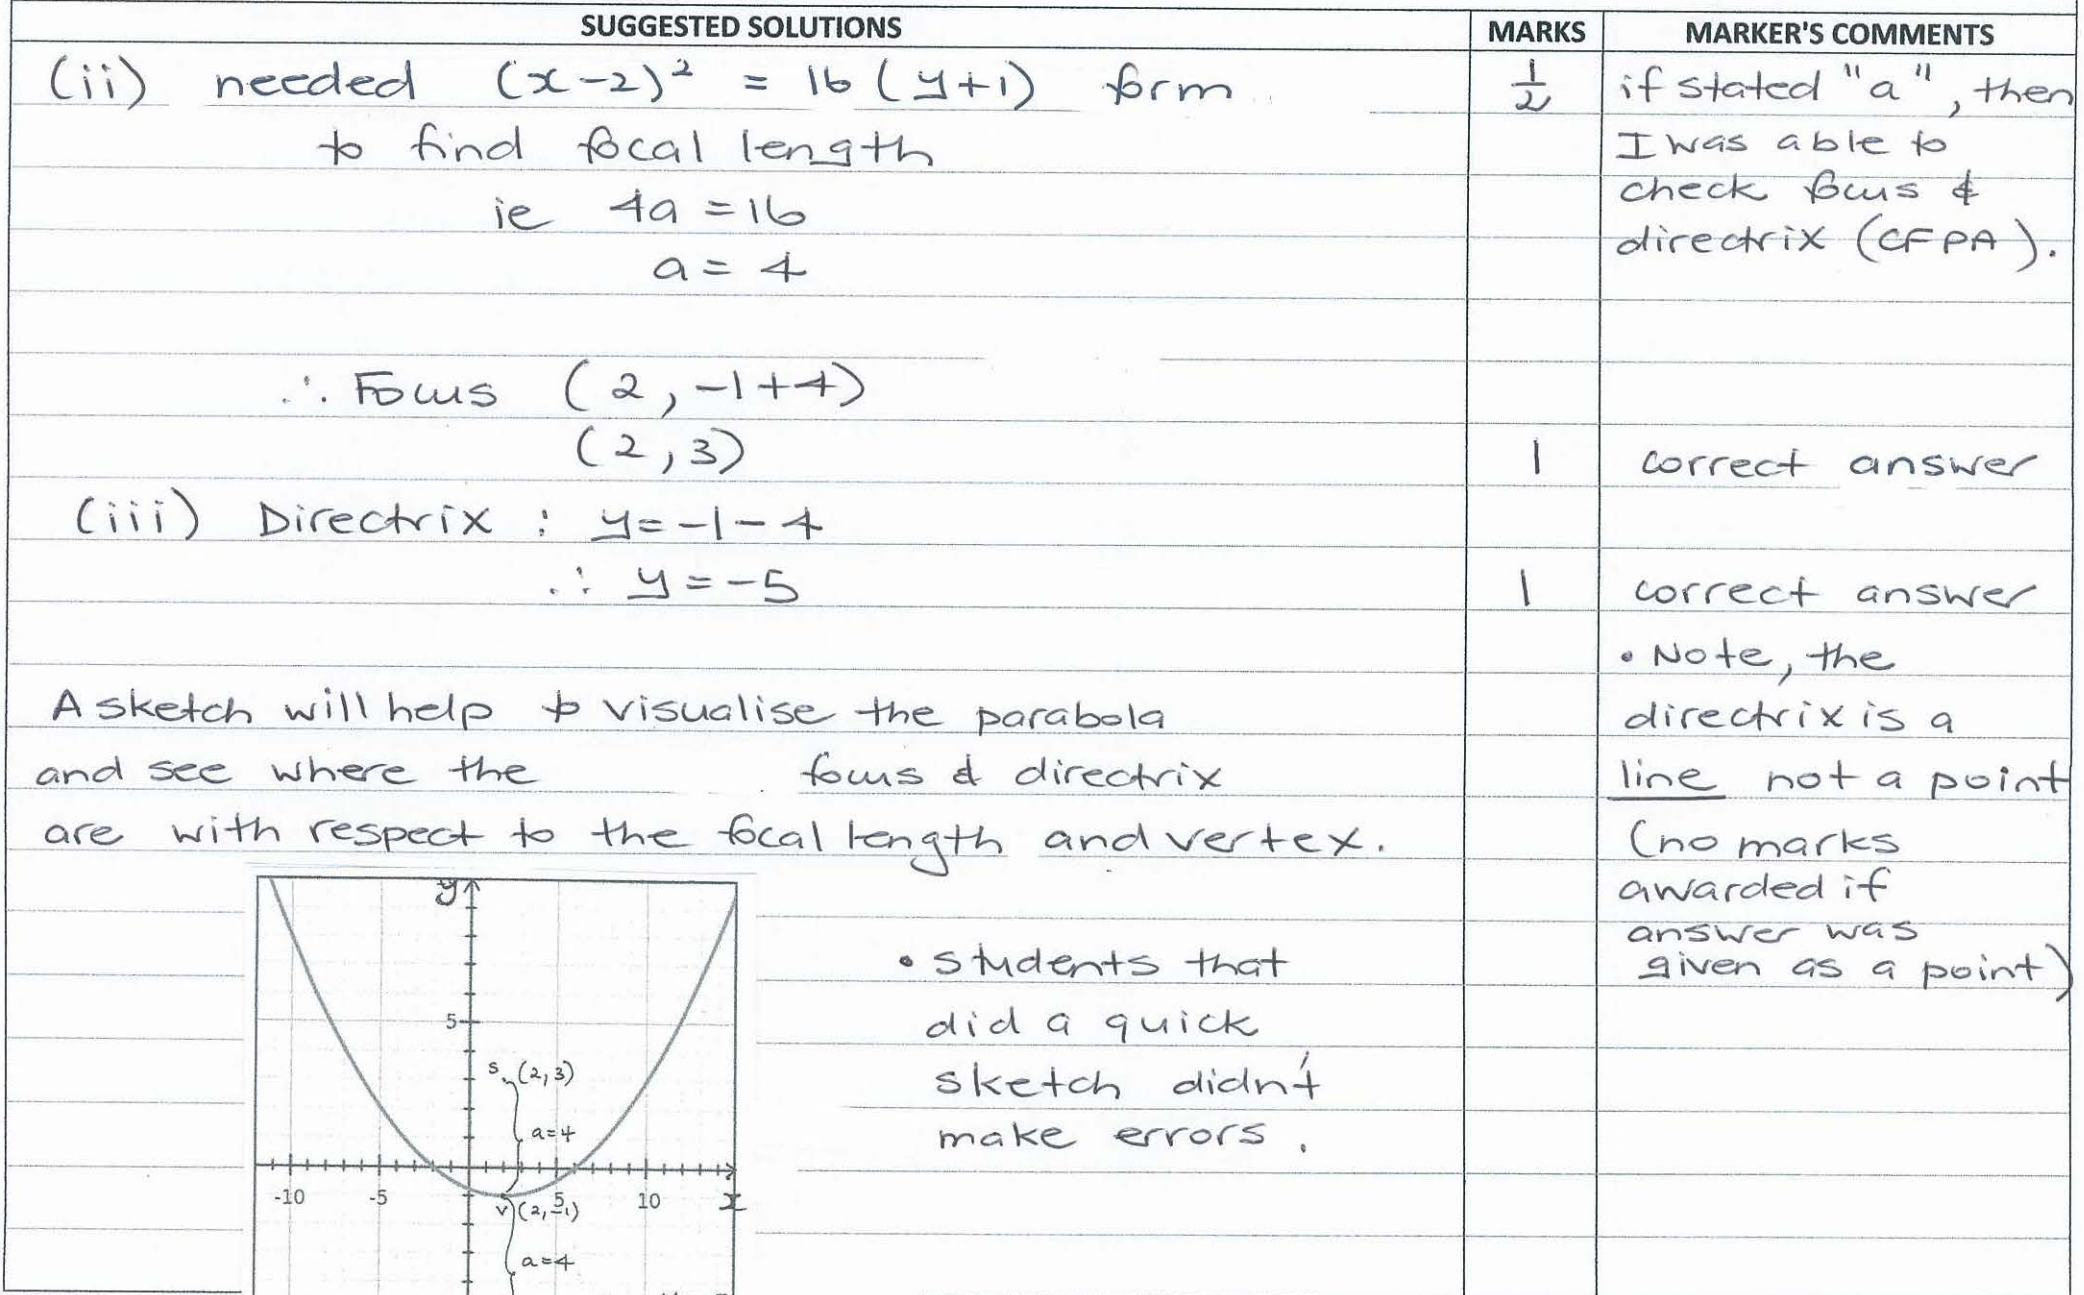 SUGGESTED SOLUTIONS MARKS MARKER'S COMMENTS
(ii) needed (x-2)² = 16 (y+1) form
to find focal length
ie 4a = 16
a = 4
½
if stated "a", then
I was able to
check focus &
directrix (CFPA).
∴ Focus (2, -1+4)
(2, 3)
1
correct answer
(iii) Directrix : y = -1 - 4
∴ y = -5
1
correct answer
• Note, the
directrix is a
line not a point
(no marks
awarded if
answer was
given as a point)
A sketch will help to visualise the parabola
and see where the focus & directrix
are with respect to the focal length and vertex.
y
5
S (2, 3)
a = 4
-10 -5 5 10 x
V (2, -1)
a = 4
• students that
did a quick
sketch didn't
make errors.